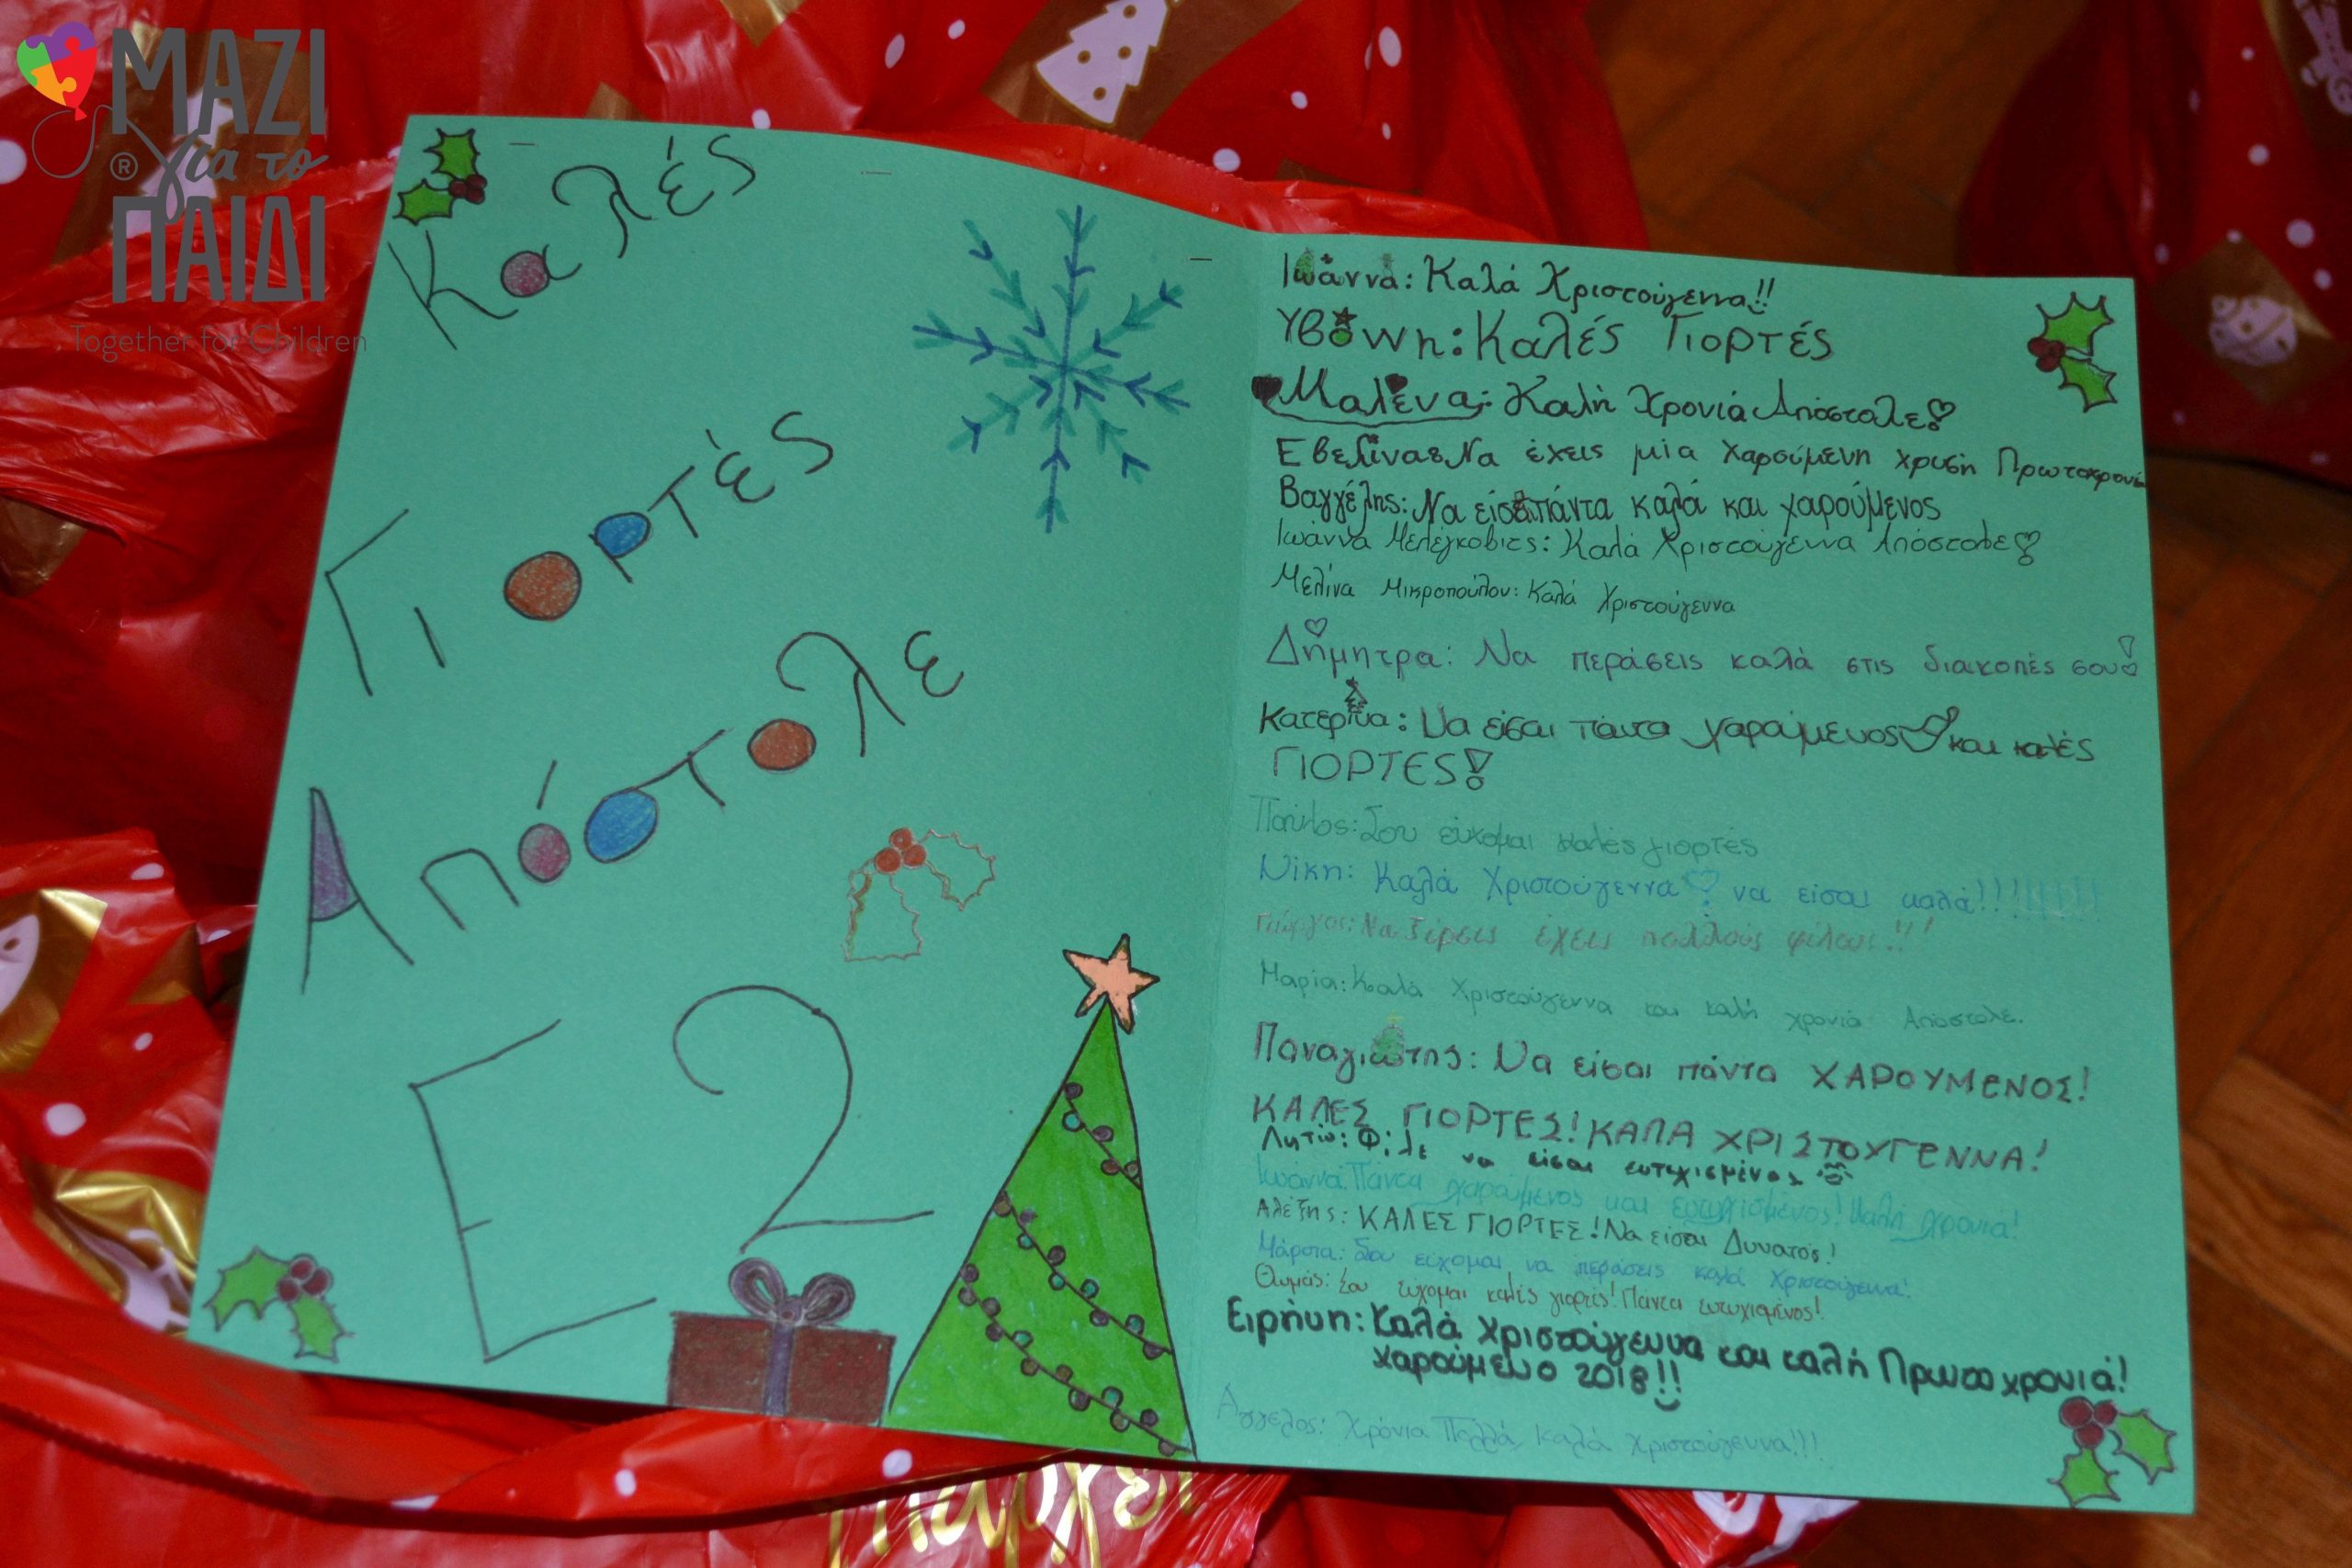 ΜΑΖΙ
® για το
ΠΑΙΔΙ
Together for Children
Καλές
Γιορτές
Απόστολε
Ε2
Ιωάννα: Καλά Χριστούγεννα!!
Υβόννη: Καλές Γιορτές
Μαλένα: Καλή Χρονιά Απόστολε!
Εβελίνα: Να έχεις μία χαρούμενη χρυσή Πρωτοχρονιά
Βαγγέλης: Να είσαι πάντα καλά και χαρούμενος
Ιωάννα Μελέγκοβιτς: Καλά Χριστούγεννα Απόστολε!
Μελίνα Μικροπούλου: Καλά Χριστούγεννα
Δήμητρα: Να περάσεις καλά στις διακοπές σου!
Κατερίνα: Να είσαι πάντα χαρούμενος και καλές
ΓΙΟΡΤΕS!
Παύλος: Σου εύχομαι καλές γιορτές
Νίκη: Καλά Χριστούγεννα να είσαι καλά!!!!!!!!!
Γιώργος: Να ξέρεις έχεις πολλούς φίλους!!!
Μαρία: Καλά Χριστούγεννα και καλή χρονιά Απόστολε.
Παναγιώτης: Να είσαι πάντα ΧΑΡΟΥΜΕΝΟΣ!
ΚΑΛΕΣ ΓΙΟΡΤΕΣ! ΚΑΛΑ ΧΡΙΣΤΟΥΓΕΝΝΑ!
Λητώ: Φίλε να είσαι ευτυχισμένος
Ιωάννα: Πάντα χαρούμενος και ευτυχισμένος! Καλή χρονιά!
Αλέξης: ΚΑΛΕΣ ΓΙΟΡΤΕΣ! Να είσαι Δυνατός!
Μάρθα: Σου εύχομαι να περάσεις καλά Χριστούγεννα!
Θωμάς: Σου εύχομαι καλές γιορτές! Πάντα ευτυχισμένος!
Ειρήνη: Καλά Χριστούγεννα και καλή Πρωτοχρονιά!
χαρούμενο 2018!!
Άγγελος: Χρόνια Πολλά, Καλά Χριστούγεννα!!!